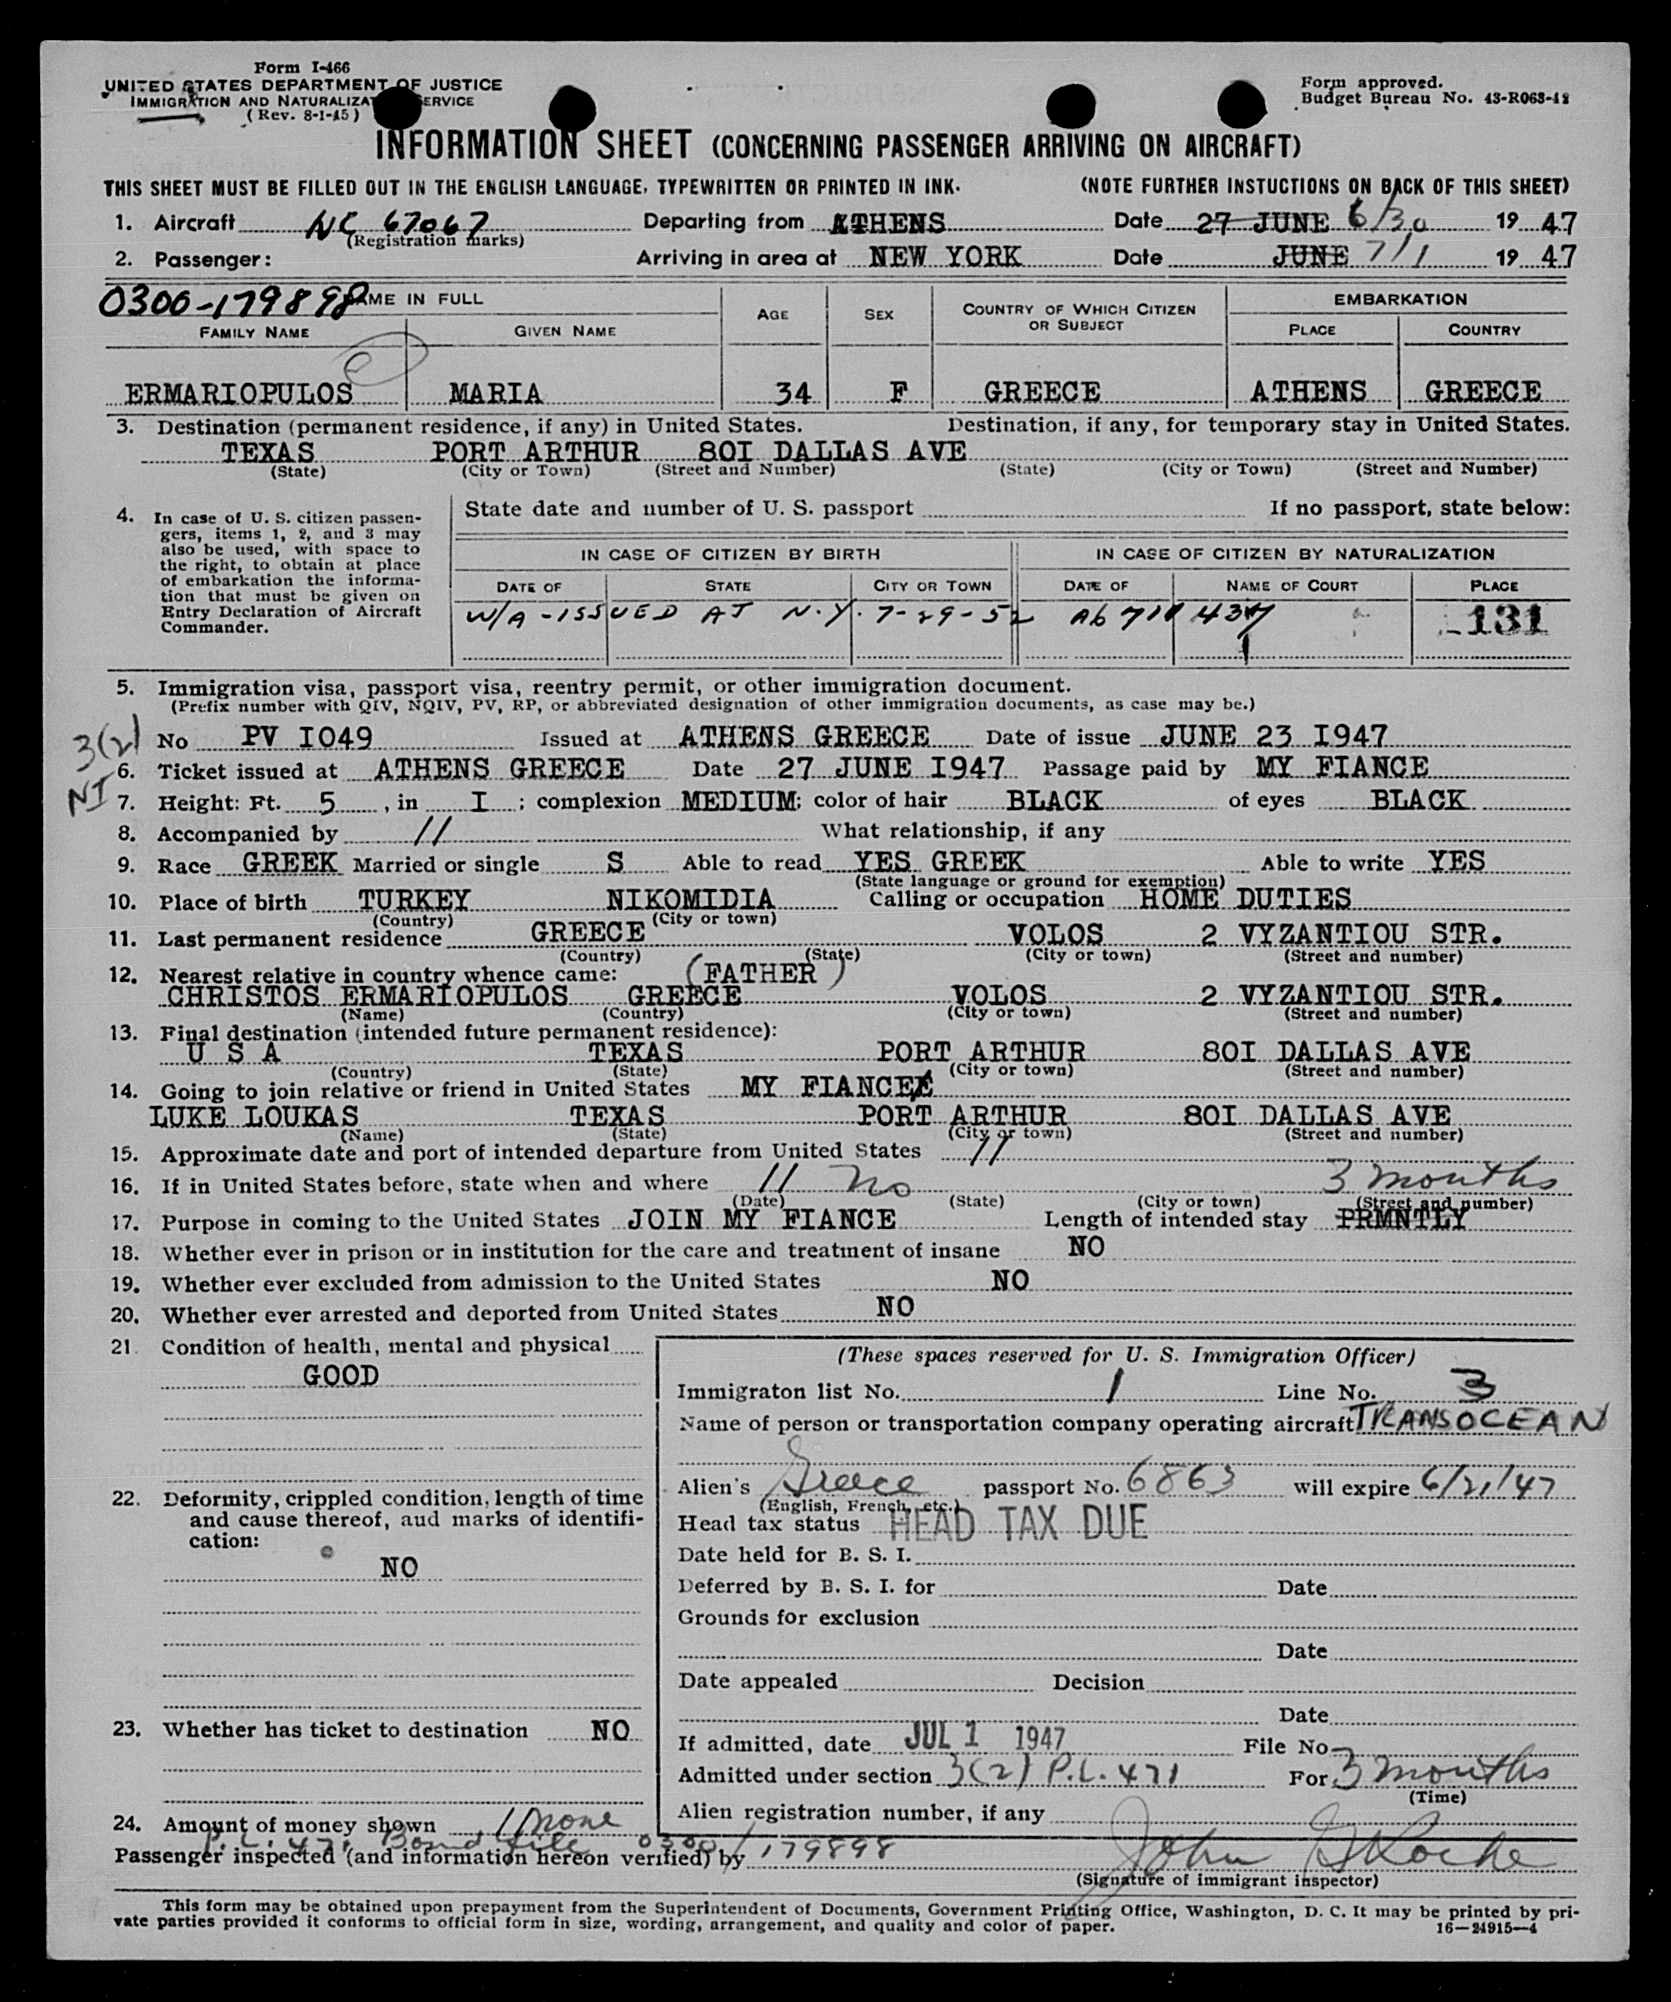 Form I-466
UNITED STATES DEPARTMENT OF JUSTICE
IMMIGRATION AND NATURALIZATION SERVICE
(Rev. 8-1-45)
Form approved.
Budget Bureau No. 43-R063-42
INFORMATION SHEET (CONCERNING PASSENGER ARRIVING ON AIRCRAFT)
THIS SHEET MUST BE FILLED OUT IN THE ENGLISH LANGUAGE, TYPEWRITTEN OR PRINTED IN INK. (NOTE FURTHER INSTUCTIONS ON BACK OF THIS SHEET)
1. Aircraft NC 67067 Departing from ATHENS Date 27 JUNE 6/30 19 47
(Registration marks)
2. Passenger: Arriving in area at NEW YORK Date JUNE 7/1 19 47
0300-179898 NAME IN FULL AGE SEX COUNTRY OF WHICH CITIZEN OR SUBJECT EMBARKATION
FAMILY NAME GIVEN NAME PLACE COUNTRY
ERMARIOPULOS MARIA 34 F GREECE ATHENS GREECE
3. Destination (permanent residence, if any) in United States. Destination, if any, for temporary stay in United States.
TEXAS PORT ARTHUR 80I DALLAS AVE
(State) (City or Town) (Street and Number) (State) (City or Town) (Street and Number)
4. In case of U. S. citizen passen-
gers, items 1, 2, and 3 may
also be used, with space to
the right, to obtain at place
of embarkation the informa-
tion that must be given on
Entry Declaration of Aircraft
Commander.
State date and number of U. S. passport If no passport, state below:
IN CASE OF CITIZEN BY BIRTH IN CASE OF CITIZEN BY NATURALIZATION
DATE OF STATE CITY OR TOWN DATE OF NAME OF COURT PLACE
W/A - ISSUED AT N.Y. 7-29-52 131
5. Immigration visa, passport visa, reentry permit, or other immigration document.
(Prefix number with QIV, NQIV, PV, RP, or abbreviated designation of other immigration documents, as case may be.)
3(2) No PV I049 Issued at ATHENS GREECE Date of issue JUNE 23 I947
6. Ticket issued at ATHENS GREECE Date 27 JUNE I947 Passage paid by MY FIANCE
NI 7. Height: Ft. 5 , in I ; complexion MEDIUM; color of hair BLACK of eyes BLACK
8. Accompanied by // What relationship, if any
9. Race GREEK Married or single S Able to read YES GREEK Able to write YES
(State language or ground for exemption)
10. Place of birth TURKEY NIKOMIDIA Calling or occupation HOME DUTIES
(Country) (City or town)
11. Last permanent residence GREECE VOLOS 2 VYZANTIOU STR.
(Country) (State) (City or town) (Street and number)
12. Nearest relative in country whence came: (FATHER)
CHRISTOS ERMARIOPULOS GREECE VOLOS 2 VYZANTIOU STR.
(Name) (Country) (City or town) (Street and number)
13. Final destination (intended future permanent residence):
U S A TEXAS PORT ARTHUR 80I DALLAS AVE
(Country) (State) (City or town) (Street and number)
14. Going to join relative or friend in United States MY FIANCE
LUKE LOUKAS TEXAS PORT ARTHUR 80I DALLAS AVE
(Name) (State) (City or town) (Street and number)
15. Approximate date and port of intended departure from United States //
16. If in United States before, state when and where // No 3 months
(Date) (State) (City or town) (Street and number)
17. Purpose in coming to the United States JOIN MY FIANCE Length of intended stay PRMNTLY
18. Whether ever in prison or in institution for the care and treatment of insane NO
19. Whether ever excluded from admission to the United States NO
20. Whether ever arrested and deported from United States NO
21. Condition of health, mental and physical
GOOD
22. Deformity, crippled condition, length of time
and cause thereof, aud marks of identifi-
cation:
NO
23. Whether has ticket to destination NO
24. Amount of money shown none
(These spaces reserved for U. S. Immigration Officer)
Immigraton list No. 1 Line No. 3
Name of person or transportation company operating aircraft TRANSOCEAN
Alien's Greece passport No. 6863 will expire 6/21/47
(English, French, etc.)
Head tax status HEAD TAX DUE
Date held for B. S. I.
Deferred by B. S. I. for Date
Grounds for exclusion
Date
Date appealed Decision
Date
If admitted, date JUL 1 1947 File No
Admitted under section 3(2) P.L. 471 For 3 months
(Time)
Alien registration number, if any
P.L. 471 Bond file 0300/179898
Passenger inspected (and information hereon verified) by John Roche
(Signature of immigrant inspector)
This form may be obtained upon prepayment from the Superintendent of Documents, Government Printing Office, Washington, D. C. It may be printed by pri-
vate parties provided it conforms to official form in size, wording, arrangement, and quality and color of paper. 16—24915—4